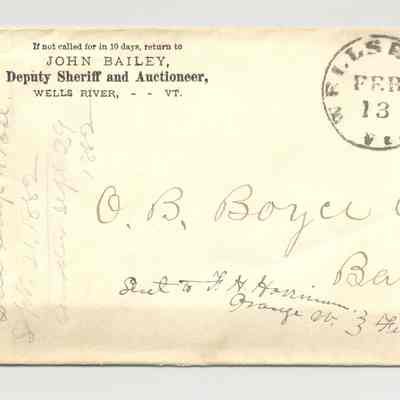 If not called for in 10 days, return to
JOHN BAILEY,
Deputy Sheriff and Auctioneer,
WELLS RIVER, - - VT.
WELLS
FEB
13
O. B. Boyce
Ba
Sent to F. H. Harriman
Orange W. 3
Sept. 21, 1882
Sept 29
1882